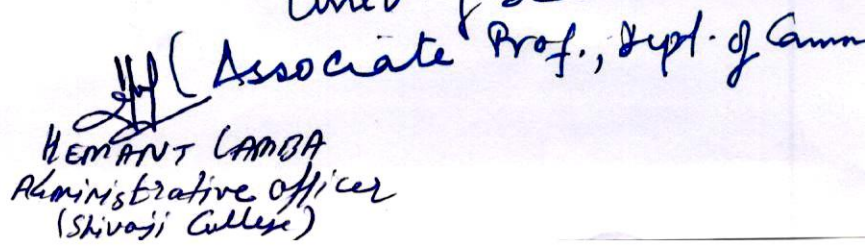 (Associate Prof., Dept. of
HEMANT LAMBA
Administrative Officer
(Shivaji College)